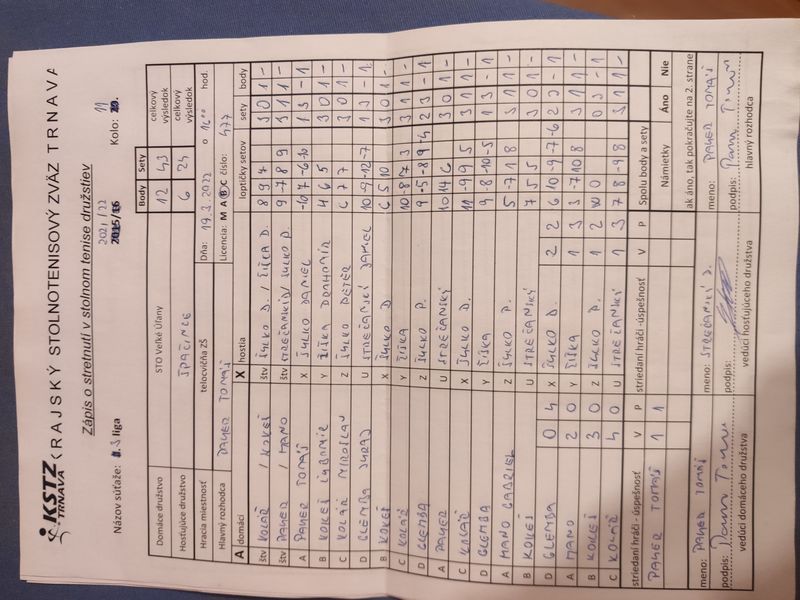 KSTZ TRNAVA KRAJSKÝ STOLNOTENISOVÝ ZVÄZ TRNAVA
Zápis o stretnutí v stolnom tenise družstiev
2021/22
Názov súťaže: 3 liga 2015/16 Kolo: 19
Body Sety celkový výsledok
Domáce družstvo STO Veľké Úľany 12 43
Hosťujúce družstvo ŠPAČINCE 6 24 celkový výsledok
Hracia miestnosť telocvičňa ZŠ Dňa: 19.2.2022 o 14 00 hod.
Hlavný rozhodca PAYER TOMÁŠ Licencia: M A B C číslo: 477
A domáci X hostia loptičky setov sety body
štv KOLÁŘ / KOKEŠ štv ŠULKO D. / ČIŠKA D. 8 9 7 3 0 1 -
štv PAYER / MANO štv STREČANSKÝ / ŠULKO P. 9 -7 8 9 3 1 1 -
A PAYER TOMÁŠ X ŠULKO DANIEL -10 7 -6 -10 1 3 - 1
B KOKEŠ ĽUBOMÍR Y ČIŠKA DRAHOMÍR 4 6 5 3 0 1 -
C KOLÁŘ MIROSLAV Z ŠULKO PETER 6 7 7 3 0 1 -
D GLEMBA JURAJ U STREČANSKÝ DANIEL 10 -9 -12 -7 1 3 - 1
B KOKEŠ X ŠULKO D 6 5 10 3 0 1 -
C KOLÁŘ Y ČIŠKA 10 -8 7 3 3 1 1 -
D GLEMBA Z ŠULKO P. 9 -5 -8 9 -4 2 3 - 1
A PAYER U STREČANSKÝ 10 14 6 3 0 1 -
C KOLÁŘ X ŠULKO D. 11 -9 9 5 3 1 1 -
D GLEMBA Y ČIŠKA 9 -8 -10 -5 1 3 - 1
A MANO GABRIEL Z ŠULKO P. 5 -7 1 8 3 1 1 -
B KOKEŠ U STREČANSKÝ 7 5 5 3 0 1 -
D GLEMBA 0 4 X ŠULKO D. 2 2 6 10 -9 -7 -6 2 3 - 1
A MANO 2 0 Y ČIŠKA 1 3 3 -7 10 8 3 1 1 -
B KOKEŠ 3 0 Z ŠULKO P. 1 2 WO 0 3 - 1
C KOLÁŘ 4 0 U STREČANSKÝ 1 3 7 8 -9 8 3 1 1 -
striedaní hráči - úspešnosť V P striedaní hráči -úspešnosť V P Spolu body a sety
PAYER TOMÁŠ 1 1 Námietky Áno Nie
ak áno, tak pokračujte na 2. strane
meno: PAYER TOMÁŠ meno: STREČANSKÝ D. meno: PAYER TOMÁŠ
podpis: podpis: podpis:
vedúci domáceho družstva vedúci hosťujúceho družstva hlavný rozhodca